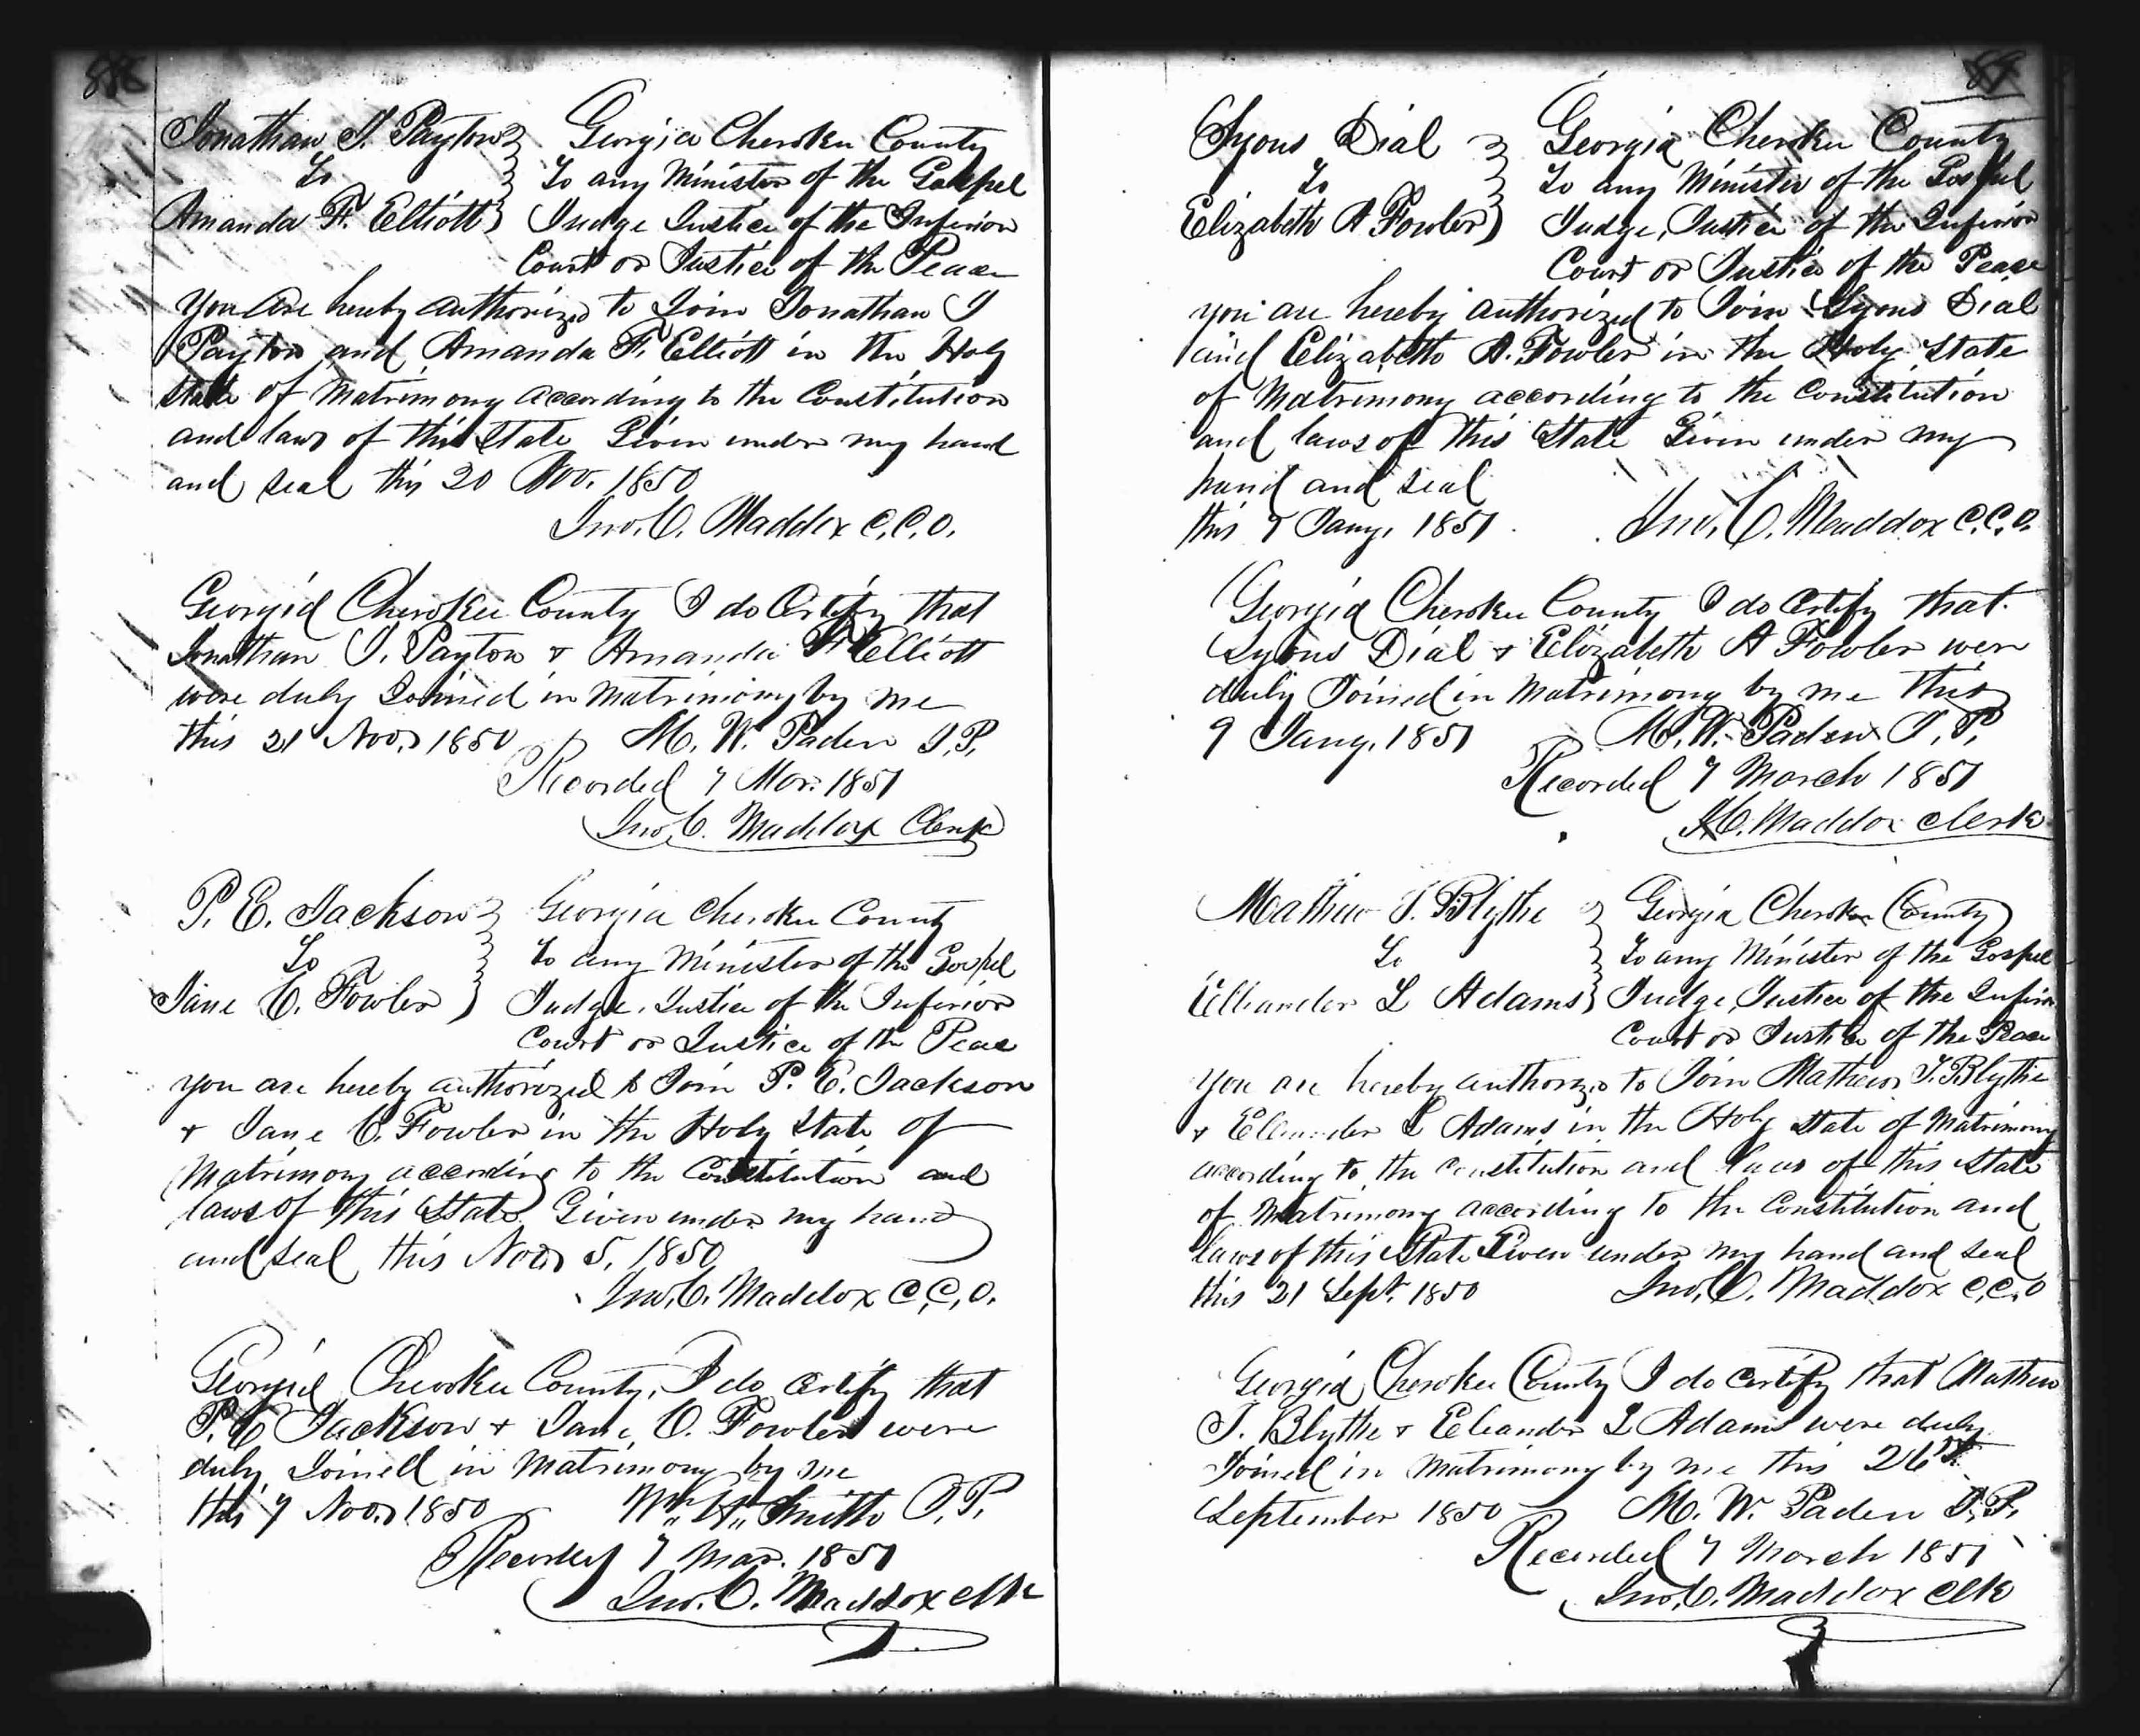 88
Jonathan J. Payton Georgia Cherokee County
To To any Minister of the Gospel
Amanda F. Elliott Judge Justice of the Inferior
Court or Justice of the Peace
You are hereby authorized to Join Jonathan J
Payton and Amanda F. Elliott in the Holy
State of Matrimony according to the Constitution
and laws of this State Given under my hand
and seal this 20 Nov. 1850
Jno. C. Maddox C.C.O.
Georgia Cherokee County I do Certify that
Jonathan J. Payton & Amanda F Elliott
were duly Joined in Matrimony by me
this 21 Nov. 1850 M. W. Paden J.P.
Recorded 7 Mar. 1851
Jno. C. Maddox Clerk
P. E. Jackson Georgia Cherokee County
To To any Minister of the Gospel
Jane C. Fowler Judge, Justice of the Inferior
Court or Justice of the Peace
you are hereby authorized to Join P. E. Jackson
& Jane C. Fowler in the Holy State of
Matrimony according to the Constitution and
laws of this State Given under my hand
and seal this Nov. 5, 1850
Jno. C. Maddox C.C.O.
Georgia Cherokee County, I do certify that
P. E Jackson & Jane C. Fowler were
duly Joined in Matrimony by me
this 7 Nov. 1850 Wm. H. Smith J.P.
Recorded 7 Mar. 1851
Jno. C. Maddox Clk
89
Lyons Dial Georgia Cherokee County
To To any Minister of the Gospel
Elizabeth A Fowler Judge, Justice of the Inferior
Court or Justice of the Peace
you are hereby authorized to Join Lyons Dial
and Elizabeth A. Fowler in the Holy State
of Matrimony according to the Constitution
and laws of this State Given under my
hand and seal
this 7 Jany. 1851 Jno. C. Maddox C.C.O.
Georgia Cherokee County I do Certify that
Lyons Dial & Elizabeth A Fowler were
duly Joined in Matrimony by me this
9 Jany. 1851 M. W. Paden J.P.
Recorded 7 March 1851
J C. Maddox clerk
Mathew J. Blythe Georgia Cherokee County
To To any Minister of the Gospel
Elleander L Adams Judge, Justice of the Inferior
Court or Justice of the Peace
You are hereby authorized to Join Mathew J. Blythe
& Elleander L Adams in the Holy State of Matrimony
according to the constitution and laws of this State
of Matrimony according to the Constitution and
laws of this State Given under my hand and seal
this 21 Sept. 1850 Jno. C. Maddox C.C.O
Georgia Cherokee County I do certify that Mathew
J. Blythe & Eleander L Adams were duly
Joined in Matrimony by me this 26th
September 1850 M. W. Paden J.P.
Recorded 7 March 1851
Jno. C. Maddox Clk